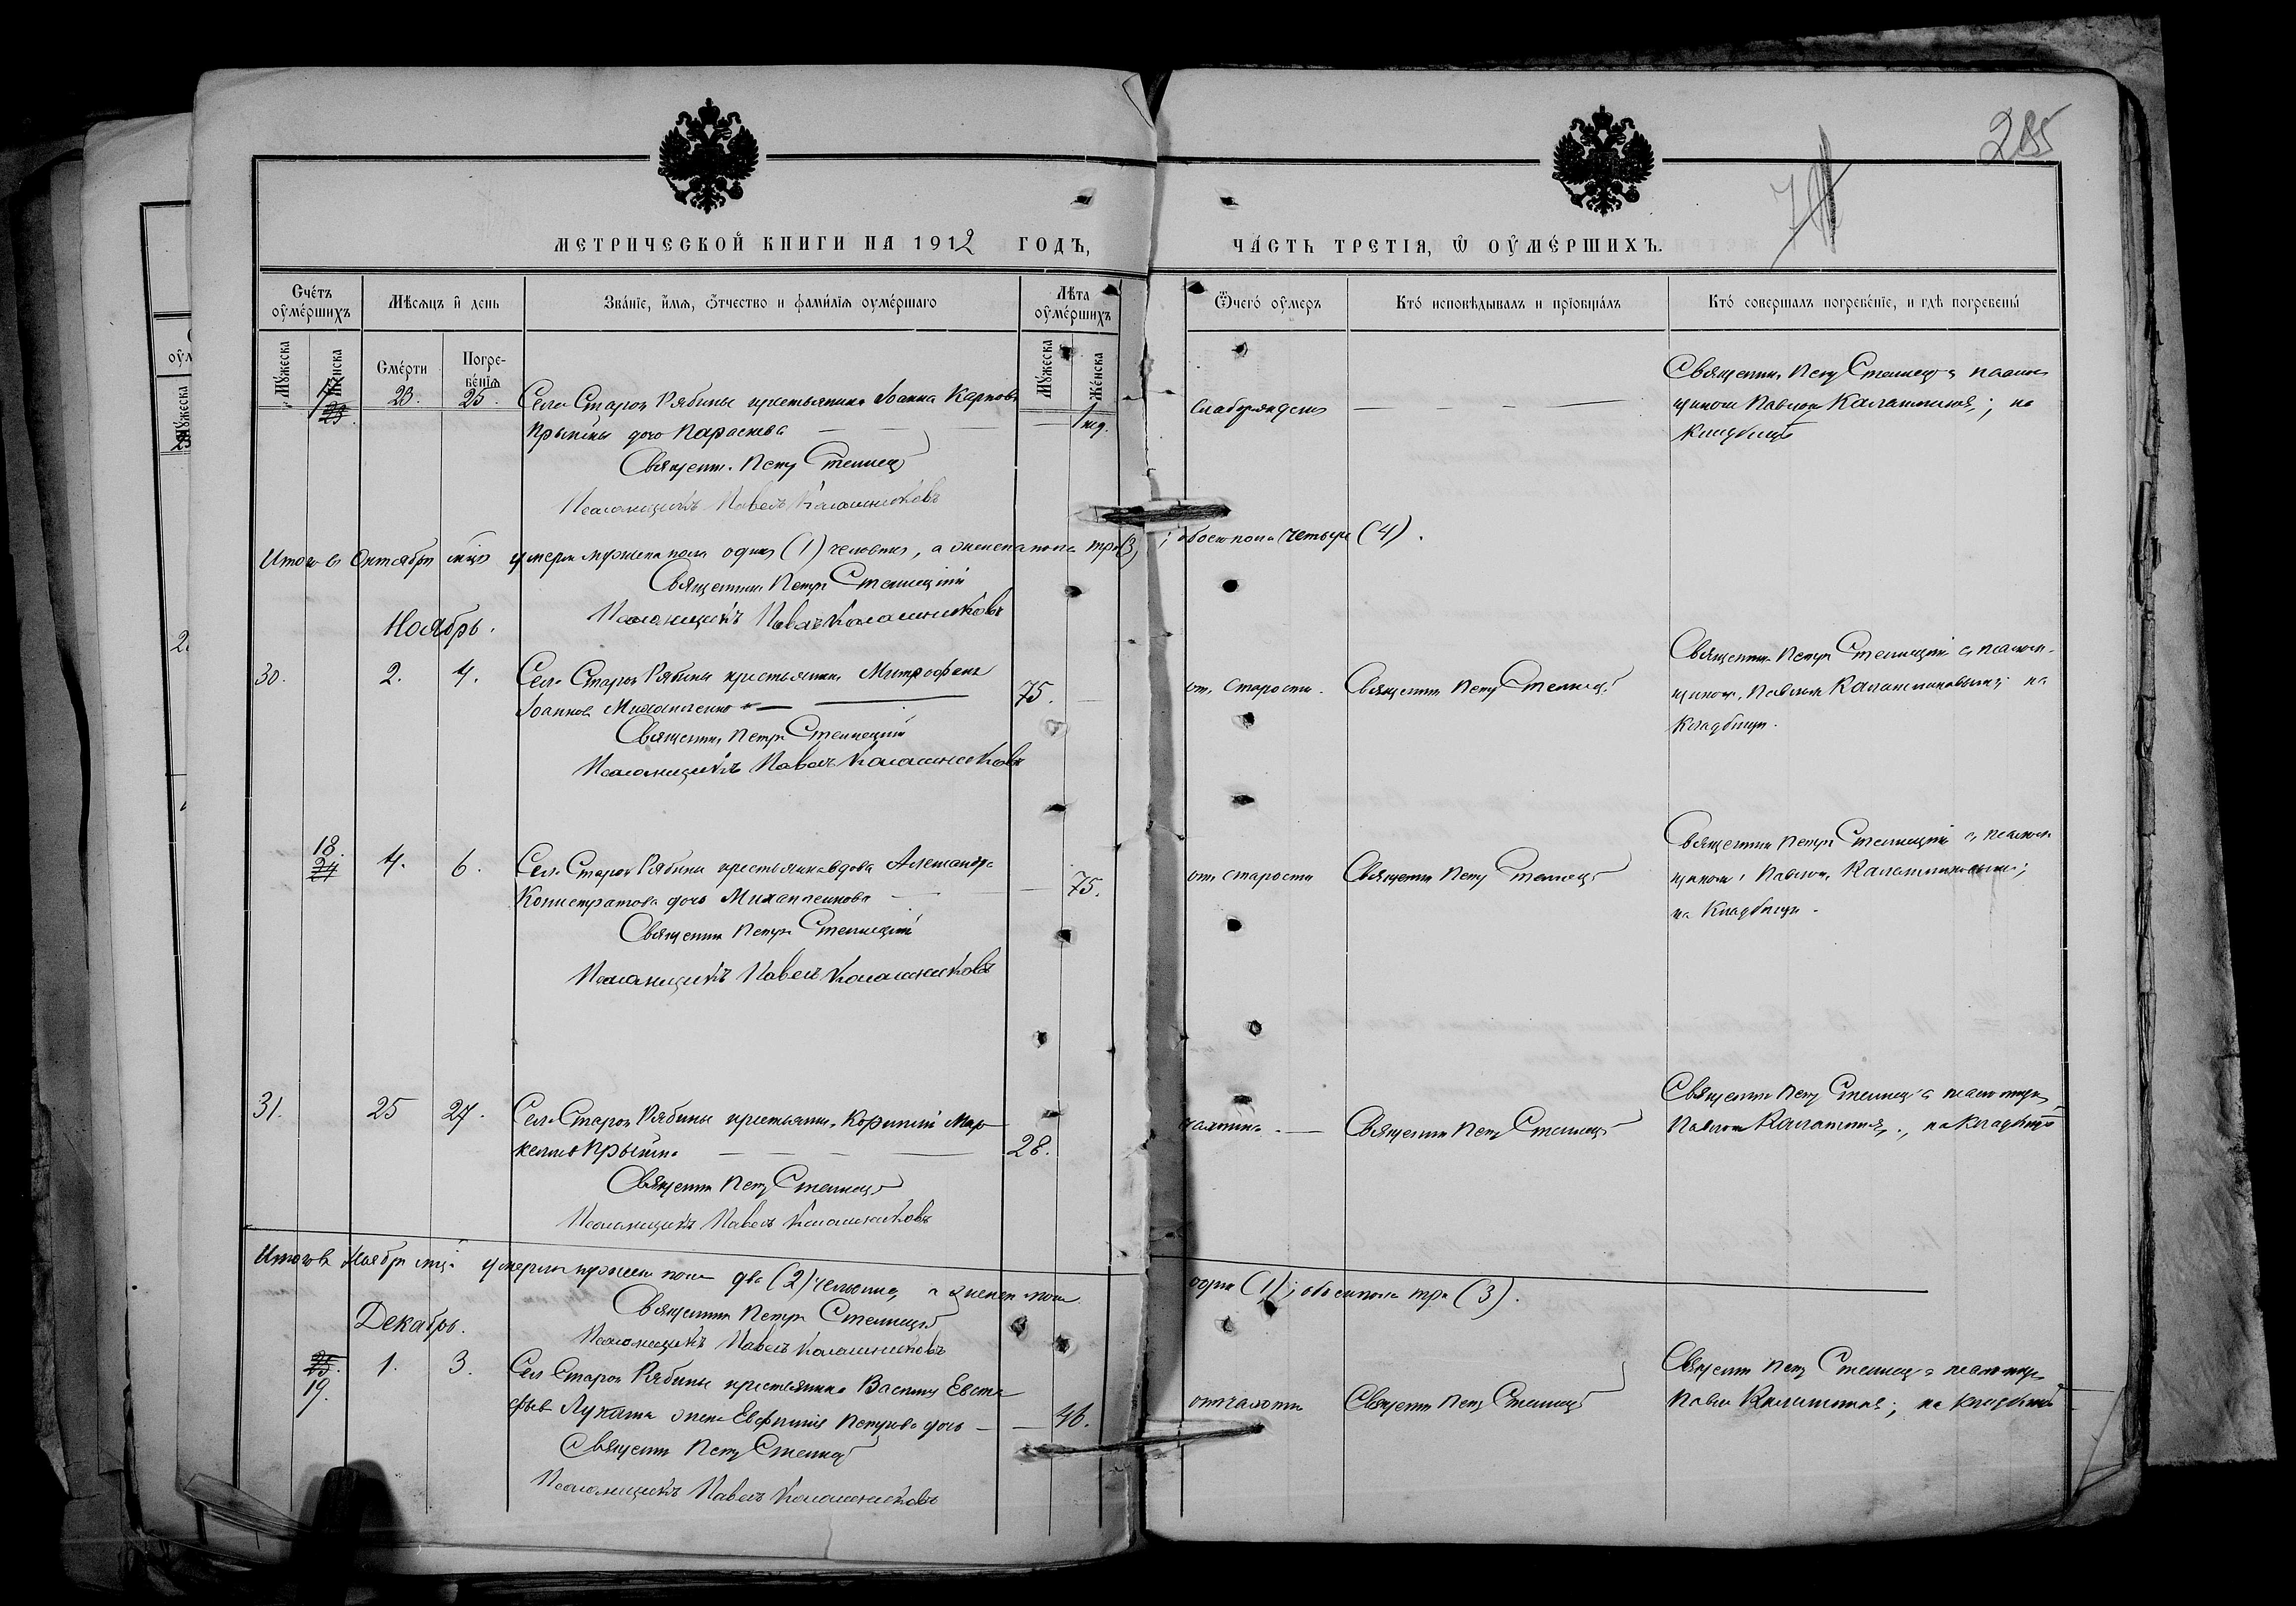 285
МЕТРИЧЕСКОЙ КНИГИ НА 1912 ГОДЪ,
ЧА́СТЬ ТРЕТІЯ, Ѡ ОУМЕ́РШИХЪ.
Сче́тъ оуме́ршихъ
Мѣсяцъ и день
Зва́ніе, и́мя, ѻ́тчество и фами́лія оуме́ршаго
Лѣта оуме́ршихъ
Ѿчегѡ́ оу́меръ
Кто́ исповѣдывалъ и пріобща́лъ
Кто́ соверша́лъ погребе́ніе, и гдѣ погребены́
Му́жеска
Же́нска
Сме́рти
Погре-
бе́нія
Му́жеска
Же́нска
17 23. 23. 25. Села Старой Рябины крестьянина Іоанна Карпова
дочь Параскева 1 нед.
Священн. Петр Стеллецкій
Псаломщикъ Павелъ Калашниковъ
слаборожденія
Священник Петр Стеллецкій с псалом-
щиком Павлом Калашник; на
кладбище
Итого в Октябре м-це умерли мужеска пола один (1) человек, а женска пола три (3)
; обоего пола четыре (4).
Священник Петр Стеллецкій
Псаломщикъ Павелъ Калашниковъ
Ноябрь.
30. 2. 4. Села Старой Рябины крестьянин Митрофанъ
Іоаннов Михайленко 75.
Священник Петр Стеллецкій
Псаломщикъ Павелъ Калашниковъ
от старости. Священник Петр Стеллецкій
Священник Петр Стеллецкій с псалом-
щиком Павлом Калашниковым; на
кладбище.
18. 24 4. 6. Села Старой Рябины крестьянин. вдова Александра
дочь Михайленкова 75.
Священник Петр Стеллецкій
Псаломщикъ Павелъ Калашниковъ
от старости Священник Петр Стеллецкій
Священник Петр Стеллецкій с псалом-
щиком Павлом Калашниковым;
на кладбище.
31. 25 27. Села Старой Рябины крестьянин Корнилій Мар-
келлов 28.
Священник Петр Стеллецкій
Псаломщикъ Павелъ Калашниковъ
чахотки. Священник Петр Стеллецкій
Священник Петр Стеллецкій с псаломщ.
Павлом Калашник.; на кладбище
Итого в Ноябре м-це умерли мужеска пола два (2) человека, а женска пола
одна (1); обоего пола три (3).
Священник Петр Стеллецкій
Псаломщикъ Павелъ Калашниковъ
Декабрь.
25. 19. 1. 3. Села Старой Рябины крестьянина Василія Евста-
фьева жена Евфимія Петрова дочь 46.
Священник Петр Стеллецкій
Псаломщикъ Павелъ Калашниковъ
от чахотки Священник Петр Стеллецкій
Священник Петр Стеллецкій с псаломщ.
Павлом Калашник.; на кладбище